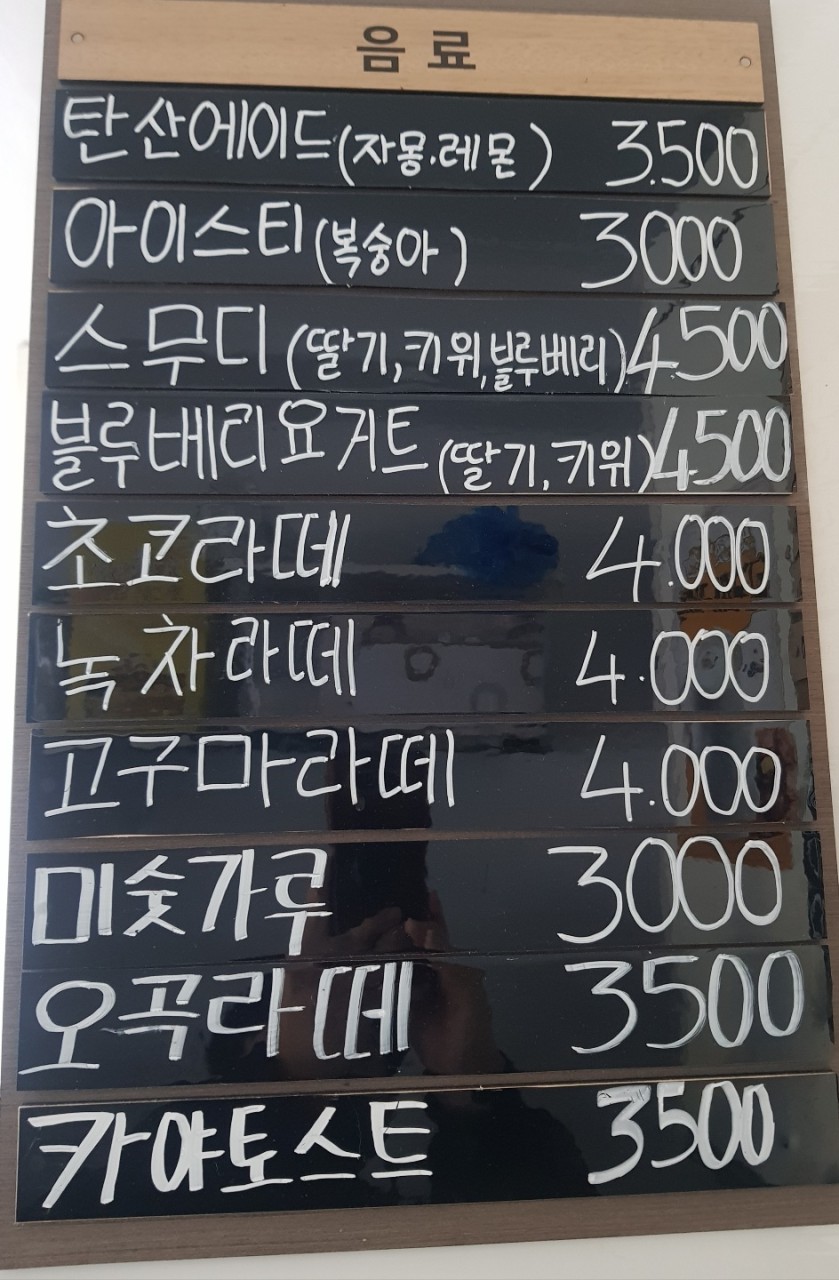 음료
탄산에이드(자몽.레몬) 3.500
아이스티(복숭아) 3000
스무디(딸기,키위,블루베리) 4.500
블루베리요거트(딸기,키위) 4500
초코라떼 4.000
녹차라떼 4.000
고구마라떼 4.000
미숫가루 3000
오곡라떼 3500
카야토스트 3500